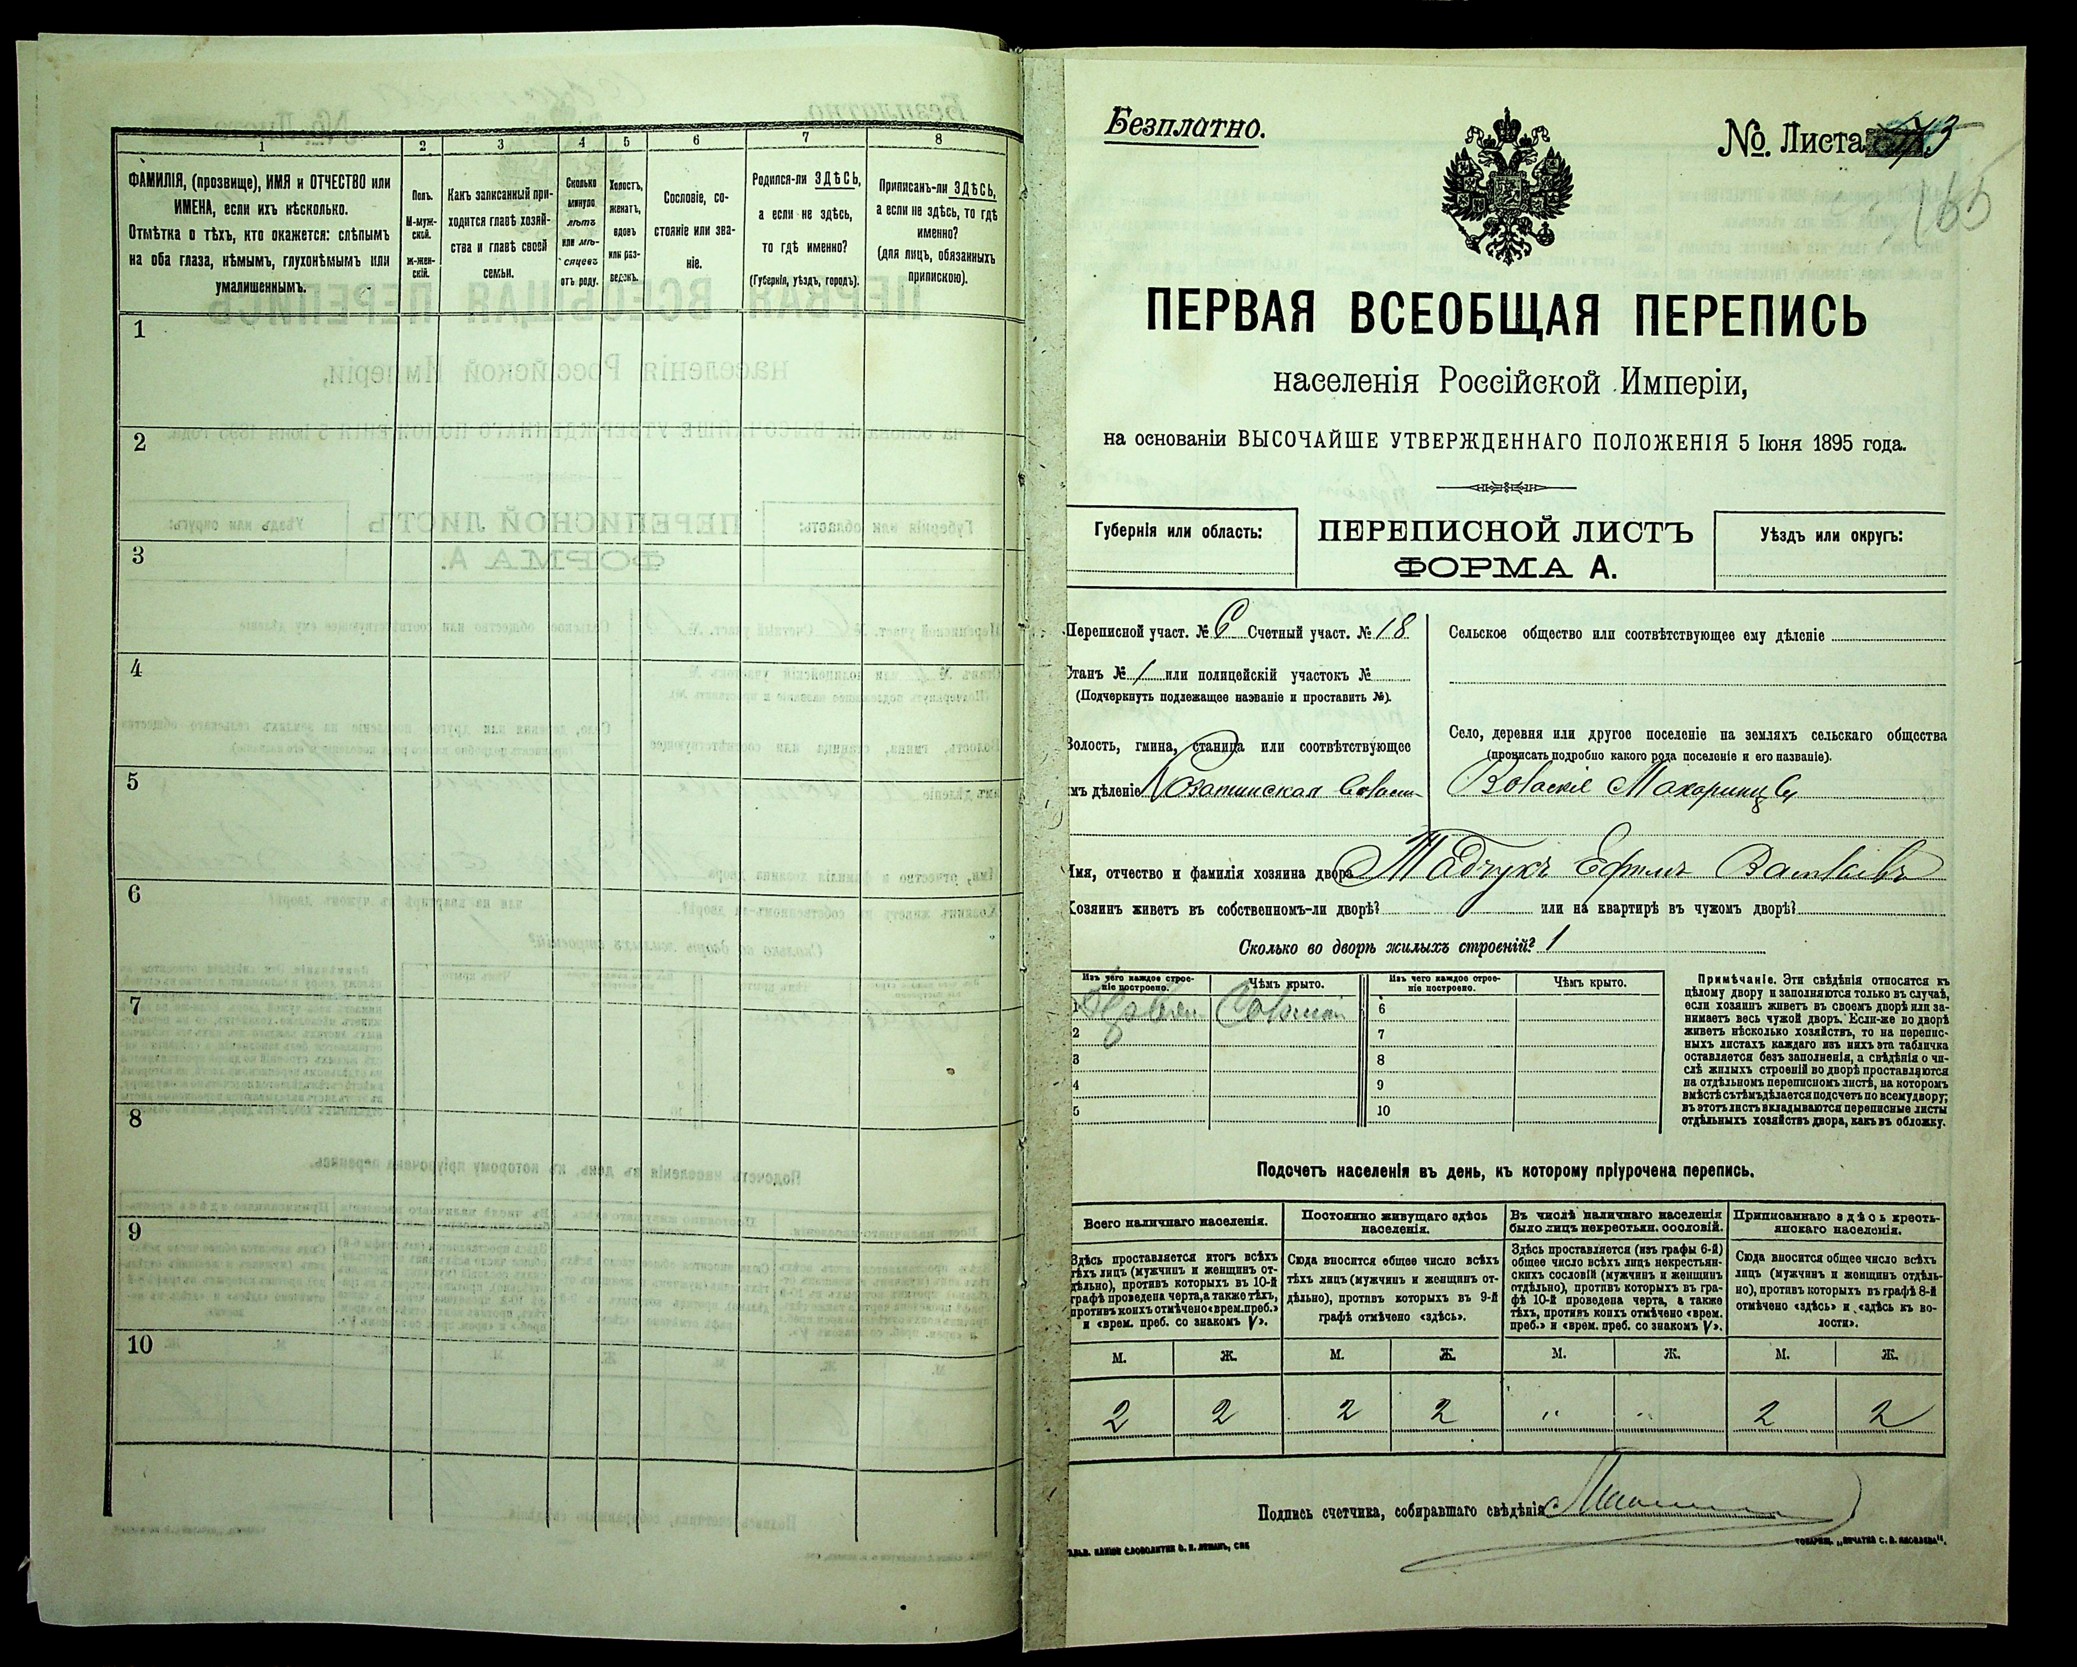 1 2 3 4 5 6 7 8
ФАМИЛІЯ, (прозвище), ИМЯ и ОТЧЕСТВО или
ИМЕНА, если ихъ нѣсколько.
Отмѣтка о тѣхъ, кто окажется: слѣпымъ
на оба глаза, нѣмымъ, глухонѣмымъ или
умалишеннымъ.
Полъ.
М-муж-
ской.
Ж-жен-
скій.
Какъ записанный при-
ходится главѣ хозяй-
ства и главѣ своей
семьи.
Сколько
минуло
лѣтъ
или мѣ-
сяцевъ
отъ роду.
Холостъ,
женатъ,
вдовъ
или раз-
веденъ.
Сословіе, со-
стояніе или зва-
ніе.
Родился-ли ЗДѢСЬ,
а если не здѣсь,
то гдѣ именно?
(Губернія, уѣздъ, городъ).
Приписанъ-ли ЗДѢСЬ,
а если не здѣсь, то гдѣ
именно?
(для лицъ, обязанныхъ
припискою).
1
2
3
4
5
6
7
8
9
10
Безплатно.
№. Листа
165
ПЕРВАЯ ВСЕОБЩАЯ ПЕРЕПИСЬ
населенія Россійской Имперіи,
на основаніи ВЫСОЧАЙШЕ УТВЕРЖДЕННАГО ПОЛОЖЕНІЯ 5 Іюня 1895 года.
Губернія или область:
ПЕРЕПИСНОЙ ЛИСТЪ
ФОРМА А.
Уѣздъ или округъ:
Переписной участ. № 6 Счетный участ. № 18
Станъ № 1 или полицейскій участокъ №
(Подчеркнуть подлежащее названіе и проставить №).
Волость, гмина, станица или соотвѣтствующее
имъ дѣленіе
Сельское общество или соотвѣтствующее ему дѣленіе
Село, деревня или другое поселеніе на земляхъ сельскаго общества
(прописать подробно какого рода поселеніе и его названіе).
Имя, отчество и фамилія хозяина двора Ефимъ
Хозяинъ живетъ въ собственномъ-ли дворѣ? или на квартирѣ въ чужомъ дворѣ?
Сколько во дворѣ жилыхъ строеній? 1
Изъ чего каждое строе-
ніе построено.
Чѣмъ крыто.
Изъ чего каждое строе-
ніе построено.
Чѣмъ крыто.
1 6
2 7
3 8
4 9
5 10
Примѣчаніе. Эти свѣдѣнія относятся къ
цѣлому двору и заполняются только въ случаѣ,
если хозяинъ живетъ въ своемъ дворѣ или за-
нимаетъ весь чужой дворъ. Если-же во дворѣ
живетъ нѣсколько хозяйствъ, то на перепис-
ныхъ листахъ каждаго изъ нихъ эта табличка
оставляется безъ заполненія, а свѣдѣнія о чи-
слѣ жилыхъ строеній во дворѣ проставляются
на отдѣльномъ переписномъ листѣ, на которомъ
вмѣстѣ съ тѣмъ дѣлается подсчетъ по всему двору;
въ этотъ листъ вкладываются переписные листы
отдѣльныхъ хозяйствъ двора, какъ въ обложку.
Подсчетъ населенія въ день, къ которому пріурочена перепись.
Всего наличнаго населенія.
Постоянно живущаго здѣсь
населенія.
Въ числѣ наличнаго населенія
было лицъ некрестьян. сословій.
Приписаннаго здѣсь кресть-
янскаго населенія.
Здѣсь проставляется итогъ всѣхъ
тѣхъ лицъ (мужчинъ и женщинъ от-
дѣльно), противъ которыхъ въ 10-й
графѣ проведена черта, а также тѣхъ,
противъ коихъ отмѣчено «врем. преб.»
и «врем. преб. со знакомъ V».
Сюда вносится общее число всѣхъ
тѣхъ лицъ (мужчинъ и женщинъ от-
дѣльно), противъ которыхъ въ 9-й
графѣ отмѣчено «здѣсь».
Здѣсь проставляется (изъ графы 6-й)
общее число всѣхъ лицъ некрестьян-
скихъ сословій (мужчинъ и женщинъ
отдѣльно), противъ которыхъ въ гра-
фѣ 10-й проведена черта, а также
тѣхъ, противъ коихъ отмѣчено «врем.
преб.» и «врем. преб. со знакомъ V».
Сюда вносится общее число всѣхъ
лицъ (мужчинъ и женщинъ отдѣль-
но), противъ которыхъ въ графѣ 8-й
отмѣчено «здѣсь» и «здѣсь къ во-
лости».
М. Ж. М. Ж. М. Ж. М. Ж.
2 2 2 2 " " 2 2
Подпись счетчика, собиравшаго свѣдѣнія